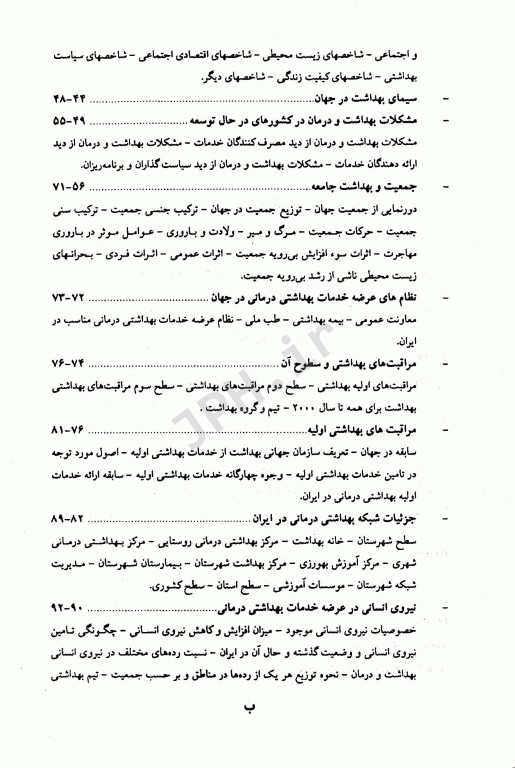 و اجتماعی - شاخصهای زیست محیطی - شاخصهای اقتصادی اجتماعی - شاخصهای سیاست
بهداشتی - شاخصهای کیفیت زندگی - شاخصهای دیگر.
- سیمای بهداشت در جهان .......... ۴۴-۴۸
- مشکلات بهداشت و درمان در کشورهای در حال توسعه .......... ۴۹-۵۵
مشکلات بهداشت و درمان از دید مصرف کنندگان خدمات - مشکلات بهداشت و درمان از دید
ارائه دهندگان خدمات - مشکلات بهداشت و درمان از دید سیاست گذاران و برنامه‌ریزان.
- جمعیت و بهداشت جامعه .......... ۵۶-۷۱
دورنمایی از جمعیت جهان - توزیع جمعیت در جهان - ترکیب جنسی جمعیت - ترکیب سنی
جمعیت - حرکات جمعیت - مرگ و میر - ولادت و باروری - عوامل موثر در باروری
مهاجرت - اثرات سوء افزایش بی‌رویه جمعیت - اثرات عمومی - اثرات فردی - بحرانهای
زیست محیطی ناشی از رشد بی‌رویه جمعیت.
- نظام های عرضه خدمات بهداشتی درمانی در جهان .......... ۷۲-۷۳
معاونت عمومی - بیمه بهداشتی - طب ملی - نظام عرضه خدمات بهداشتی درمانی مناسب در
ایران.
- مراقبت‌های بهداشتی و سطوح آن .......... ۷۴-۷۶
مراقبت‌های اولیه بهداشتی - سطح دوم مراقبت‌های بهداشتی - سطح سوم مراقبت‌های بهداشتی
بهداشت برای همه تا سال ۲۰۰۰ - تیم و گروه بهداشت .
- مراقبت های بهداشتی اولیه .......... ۷۶-۸۱
سابقه در جهان - تعریف سازمان جهانی بهداشت از خدمات بهداشتی اولیه - اصول مورد توجه
در تامین خدمات بهداشتی اولیه - وجوه چهارگانه خدمات بهداشتی اولیه - سابقه ارائه خدمات
اولیه بهداشتی درمانی در ایران.
- جزئیات شبکه بهداشتی درمانی در ایران .......... ۸۲-۸۹
سطح شهرستان - خانه بهداشت - مرکز بهداشتی درمانی روستایی - مرکز بهداشتی درمانی
شهری - مرکز آموزش بهورزی - مرکز بهداشت شهرستان - بیمارستان شهرستان - مدیریت
شبکه شهرستان - موسسات آموزشی - سطح استان - سطح کشوری.
- نیروی انسانی در عرضه خدمات بهداشتی درمانی .......... ۹۰-۹۲
خصوصیات نیروی انسانی موجود - میزان افزایش و کاهش نیروی انسانی - چگونگی تامین
نیروی انسانی و وضعیت گذشته و حال آن در ایران - نسبت رده‌های مختلف در نیروی انسانی
بهداشت و درمان - نحوه توزیع هر یک از رده‌ها در مناطق و بر حسب جمعیت - تیم بهداشتی
ب
JPH.ir